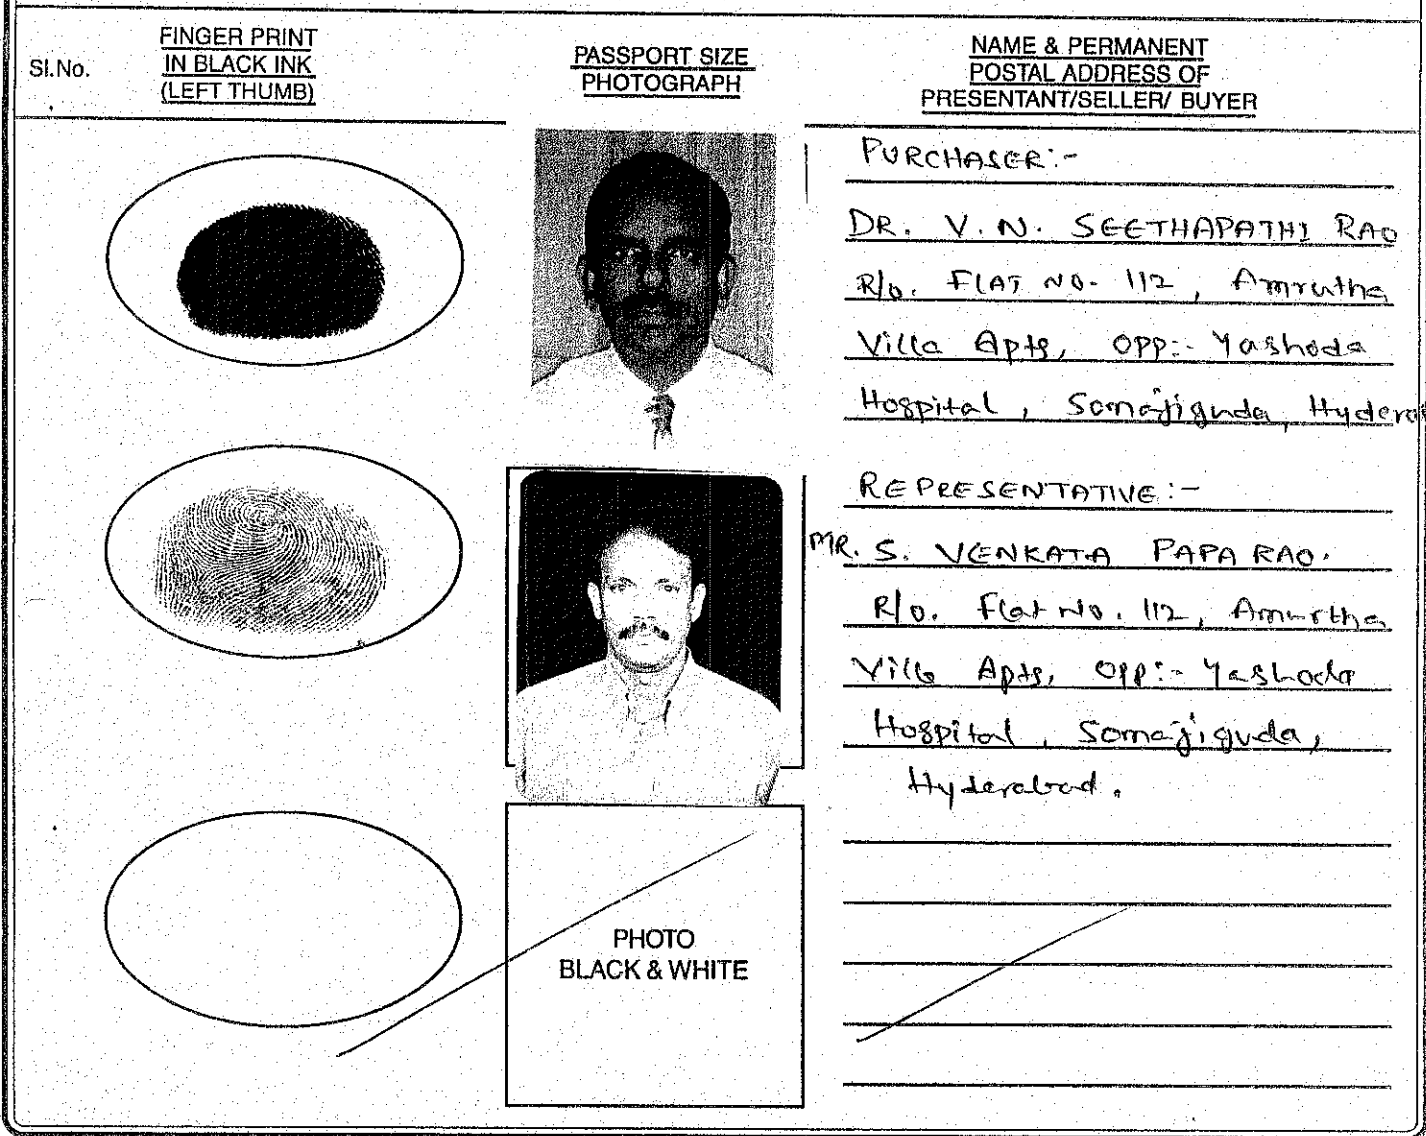 Sl.No.
FINGER PRINT
IN BLACK INK
(LEFT THUMB)
PASSPORT SIZE
PHOTOGRAPH
NAME & PERMANENT
POSTAL ADDRESS OF
PRESENTANT/SELLER/ BUYER
PURCHASER:-
DR. V.N. SEETHAPATHI RAO
R/o. FLAT NO. 112, Amrutha
Villa Apts, OPP:- Yashoda
Hospital, Somajiguda, Hyderab
REPRESENTATIVE:-
MR. S. VENKATA PAPA RAO.
R/o. Flat No. 112, Amurtha
Villa Apts, OPP:- Yashoda
Hospital, Somajiguda,
Hyderabad.
PHOTO
BLACK & WHITE